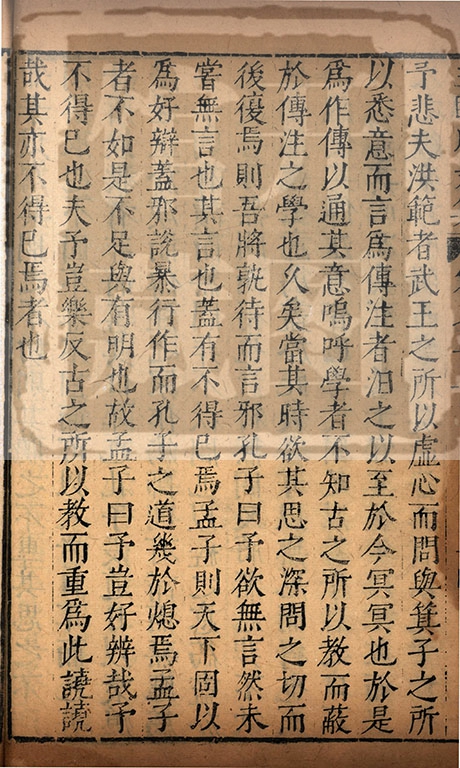 予悲夫洪範者武王之所以虛心而問與箕子之所
以悉意而言為傳注者汩之以至於今冥冥也於是
為作傳以通其意嗚呼學者不知古之所以教而蔽
於傳注之學也久矣當其時欲其思之深問之切而
後復焉則吾將孰待而言邪孔子曰予欲無言然未
嘗無言也其言也蓋有不得已焉孟子則天下固以
為好辯蓋邪說暴行作而孔子之道幾於熄焉孟子
者不如是不足與有明也故孟子曰予豈好辨哉予
不得已也夫予豈樂反古之所以教而重為此譊譊
哉其亦不得已焉者也